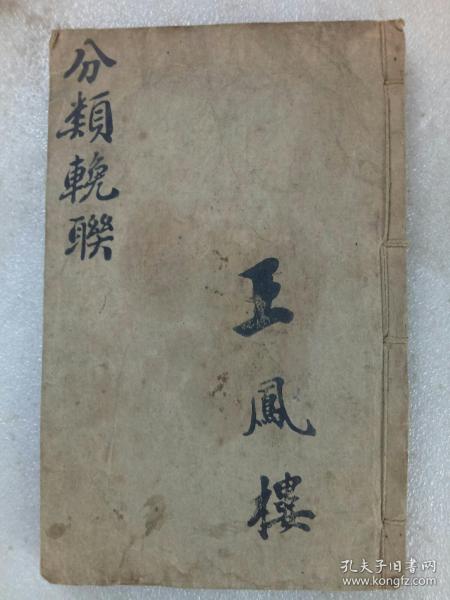 分類輓聯
王鳳樓
孔夫子旧书网
www.kongfz.com